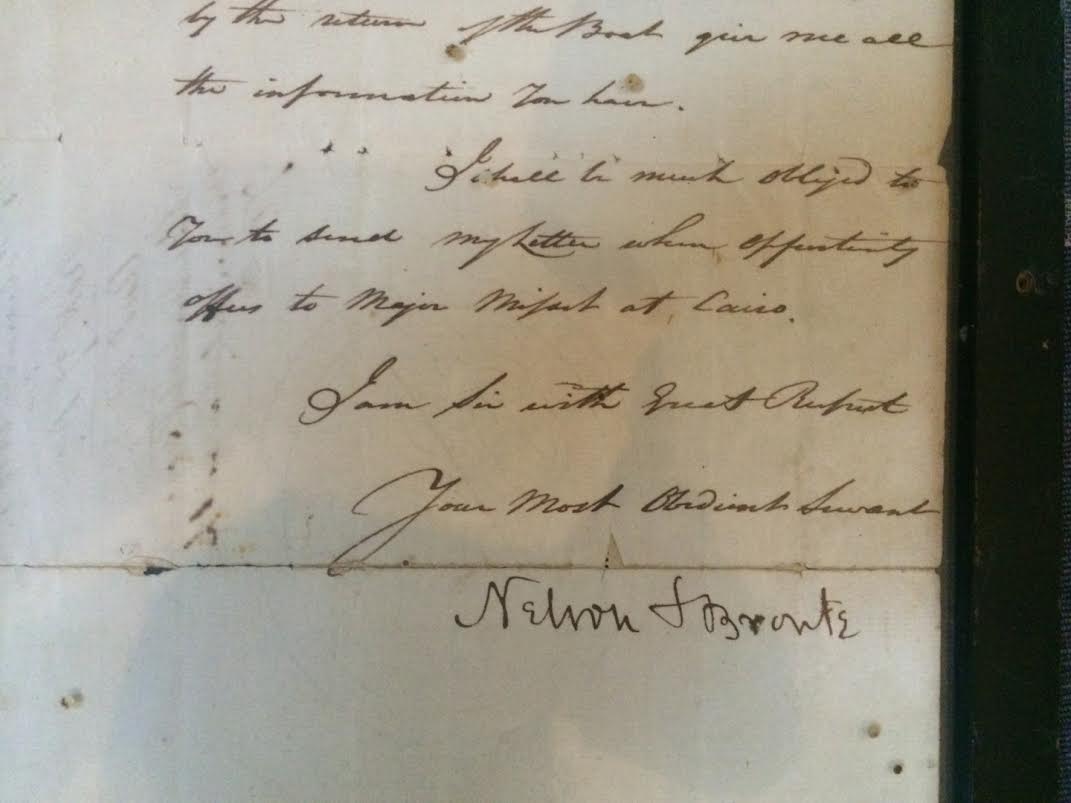 by the return of the Boat give me all
the information You have.
I shall be much obliged to
You to send my Letter when opportunity
offers to Major Missett at Cairo.
I am Sir with Great Respect
Your Most Obedient Servant
Nelson & Bronte